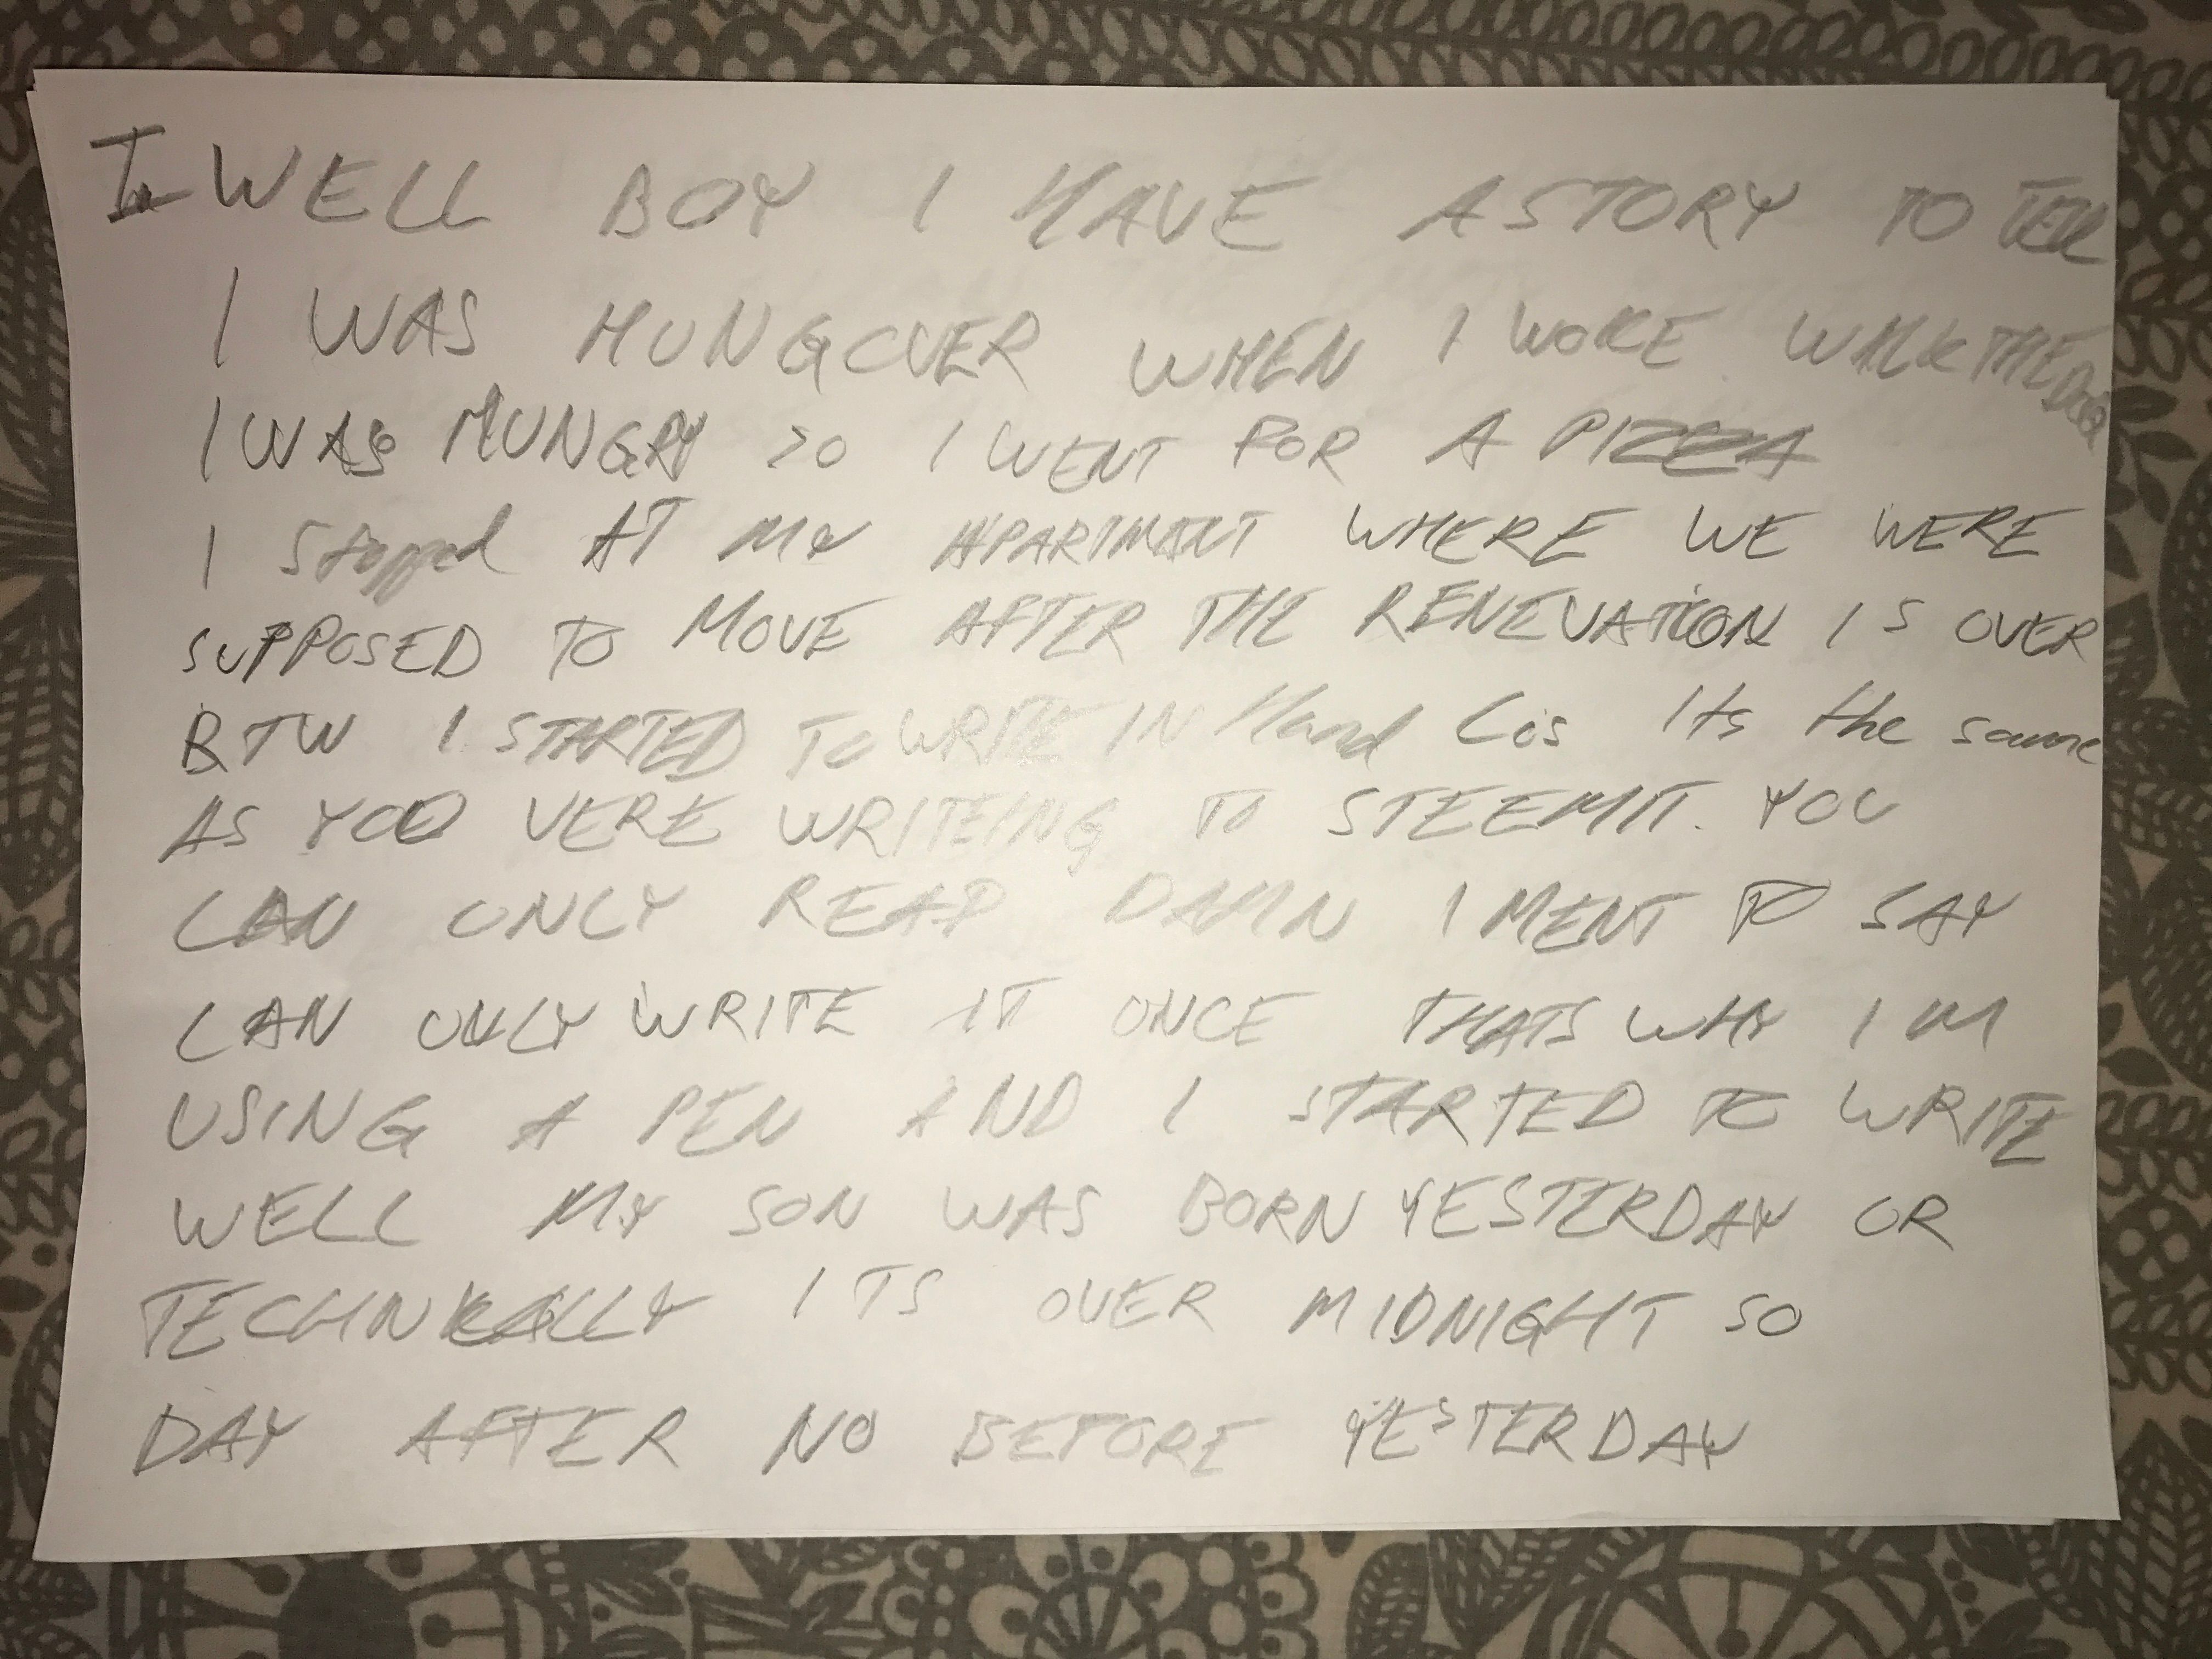 WELL BOY I HAVE A STORY TO TELL
I WAS HUNGOVER WHEN I WOKE WALK THE DOG
I WAS HUNGRY SO I WENT FOR A PIZZA
I Stopped AT MY APARTMANT WHERE WE WERE
SUPPOSED TO MOVE AFTER THE RENEVATION IS OVER
BTW I STARTED TO WRITE IN Hand Its the same
AS YOU VERE WRITEING TO STEEMIT. YOU
CAN ONLY READ DAMN I MENT TO SAY
CAN ONLY WRITE IT ONCE THATS WHY I M
USING A PEN AND I STARTED TO WRITE
WELL MY SON WAS BORN YESTERDAY OR
TECHNICALLY ITS OVER MIDNIGHT SO
DAY AFTER NO BEFORE YESTERDAY